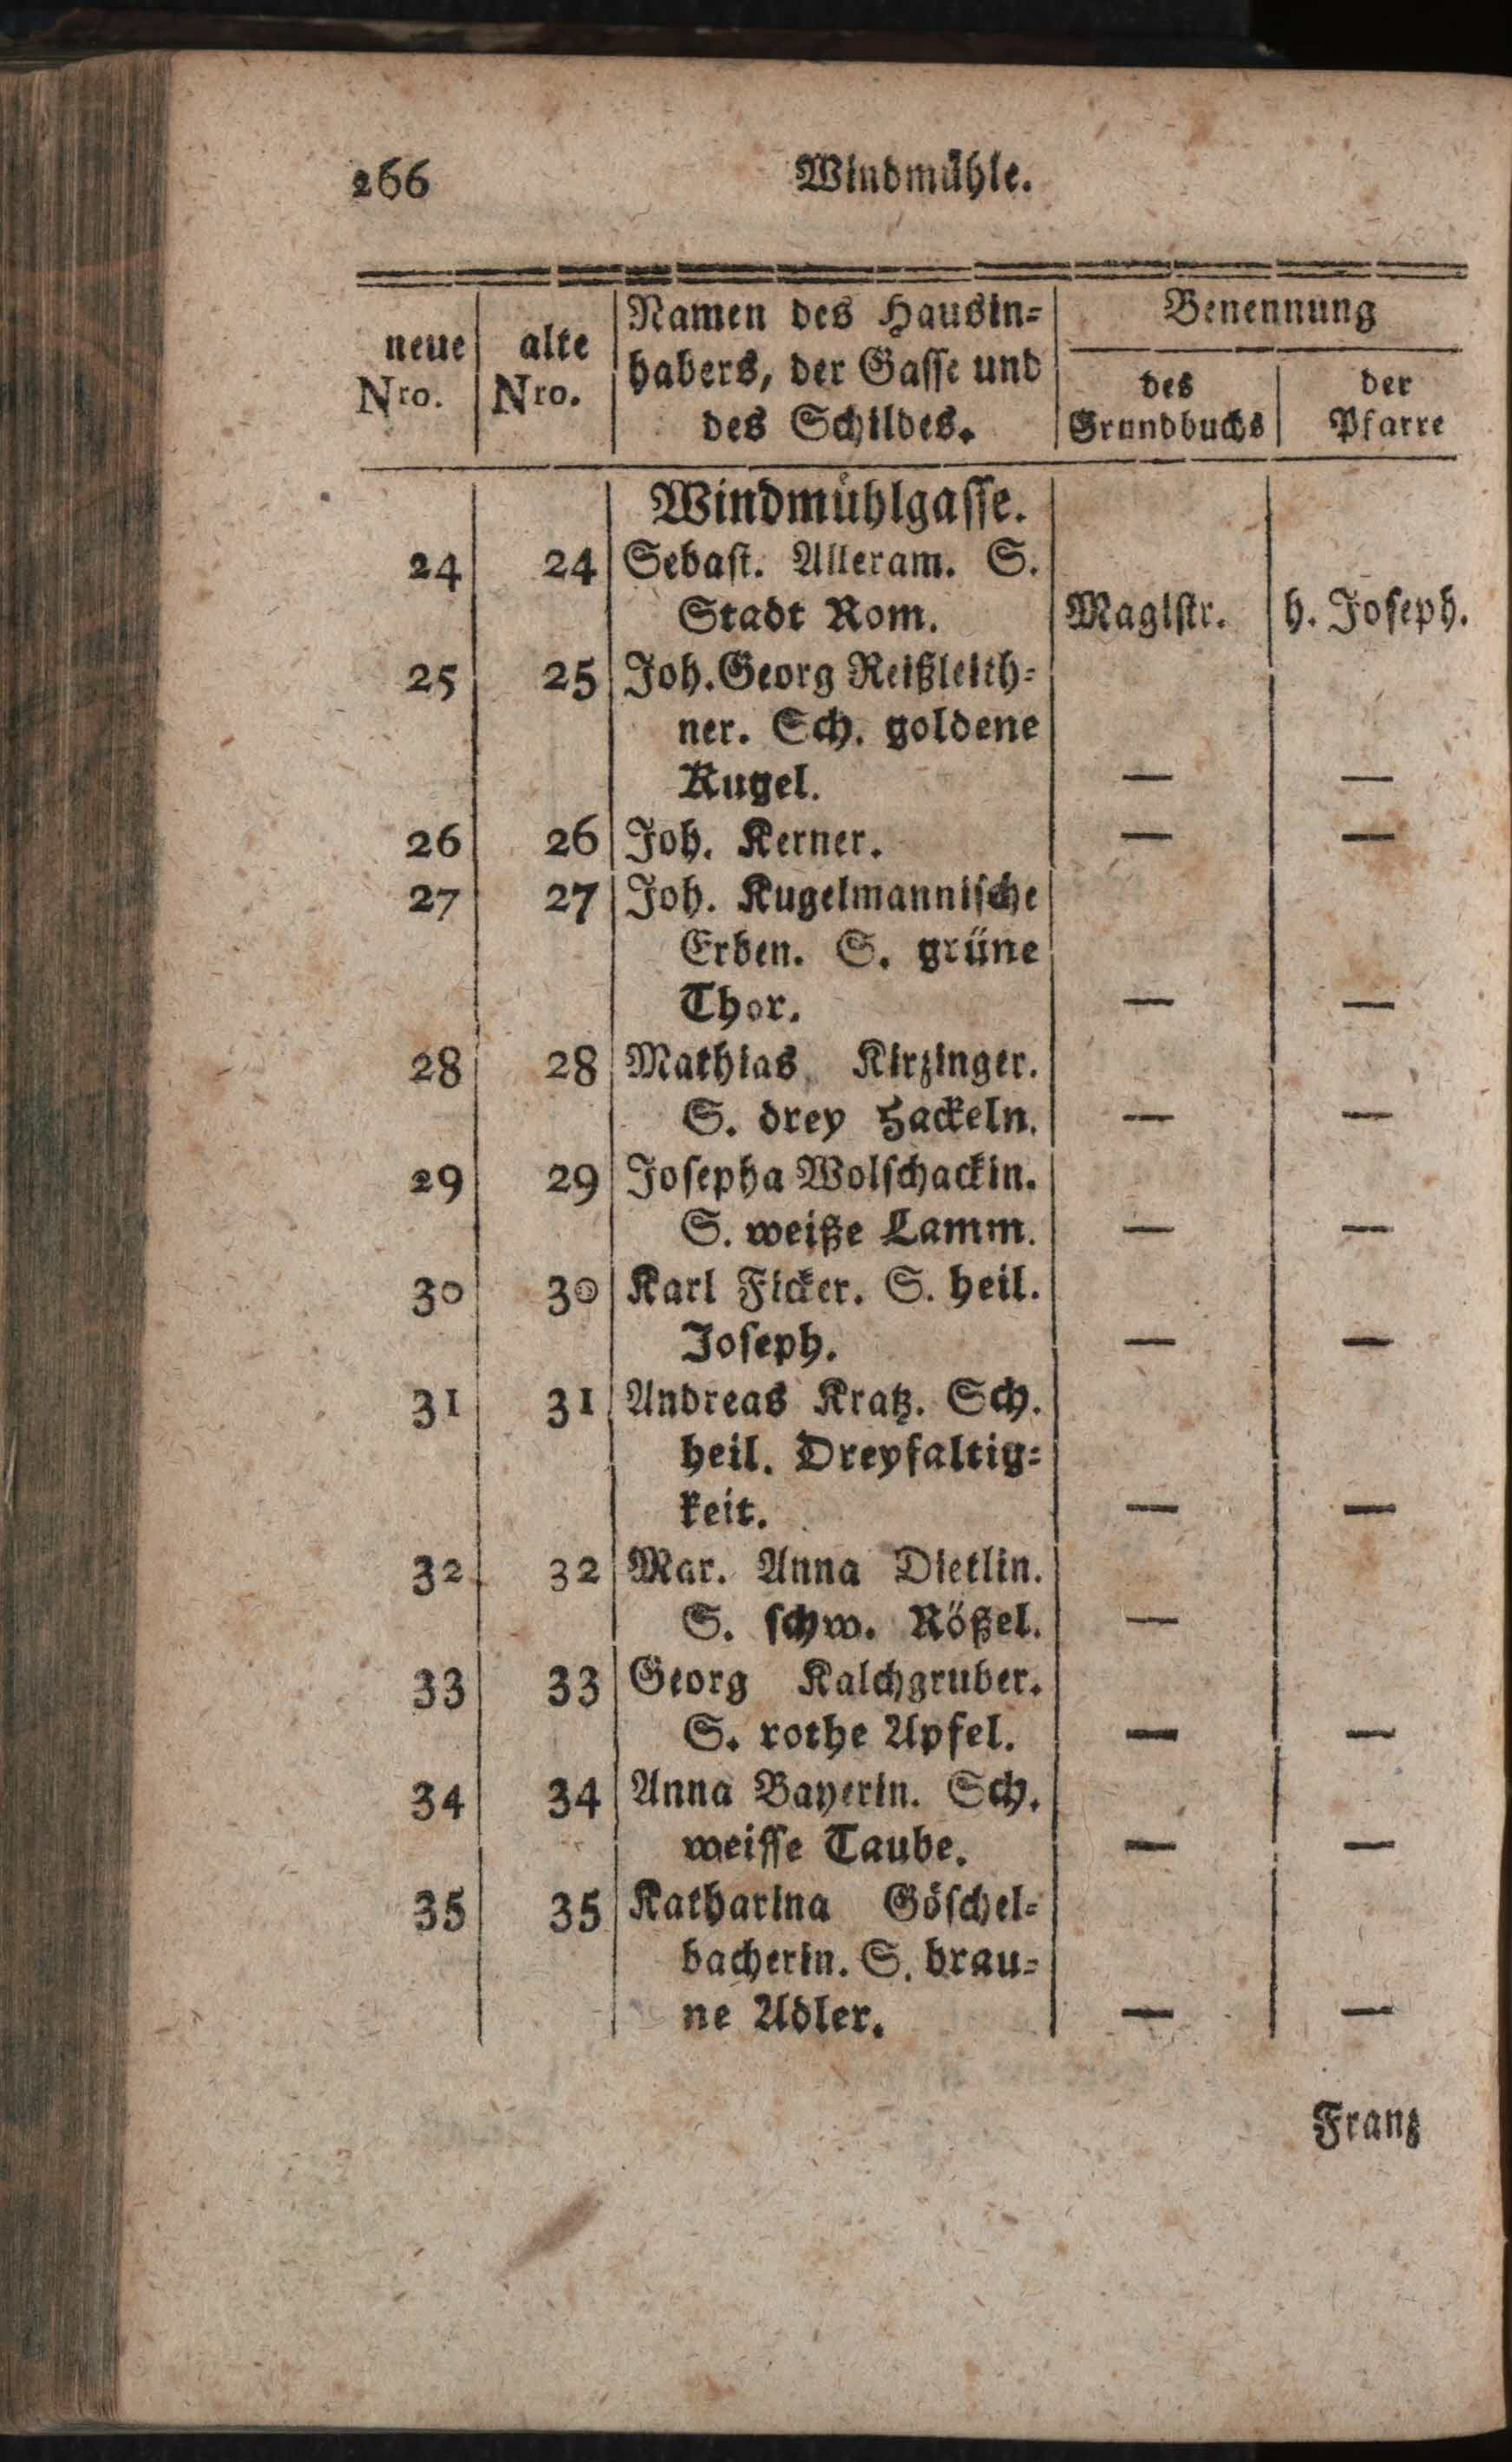 266 Windmühle.
neue Nro. alte Nro. Namen des Hausin=
habers, der Gasse und
des Schildes. Benennung
des Grundbuchs der Pfarre
Windmühlgasse.
24 24 Sebast. Alleram. S.
Stadt Rom. Magistr. h. Joseph.
25 25 Joh. Georg Reißleith=
ner. Sch. goldene
Kugel. — —
26 26 Joh. Kerner. — —
27 27 Joh. Kugelmannische
Erben. S. grüne
Thor. — —
28 28 Mathias Kirzinger.
S. drey Hackeln. — —
29 29 Josepha Wolschackin.
S. weiße Lamm. — —
30 30 Karl Ficker. S. heil.
Joseph. — —
31 31 Andreas Kratz. Sch.
heil. Dreyfaltig=
keit. — —
32 32 Mar. Anna Dietlin.
S. schw. Rößel. —
33 33 Georg Kalchgruber.
S. rothe Apfel. — —
34 34 Anna Bayerin. Sch.
weisse Taube. — —
35 35 Katharina Göschel=
bacherin. S. brau=
ne Adler. — —
Franz